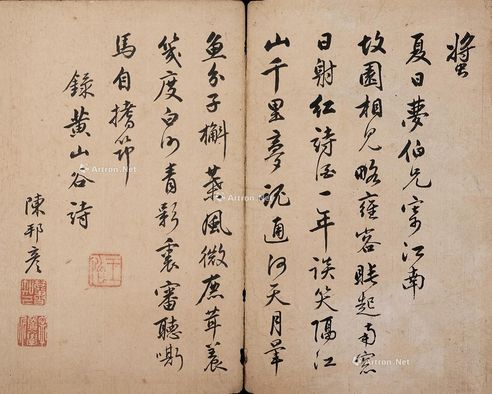 螿
夏日夢伯兄寄江南
故園相見略雍容睡起南窓
日射紅詩酒一年談笑隔江
山千里夢魂通河天月暈
魚分子槲葉風微鹿茸養
幾度白沙青影裏審聽嘶
馬自搘筇
錄黃山谷詩
陳邦彥
Artron.Net
Artron.Net
Artron.Net
Artron.Net